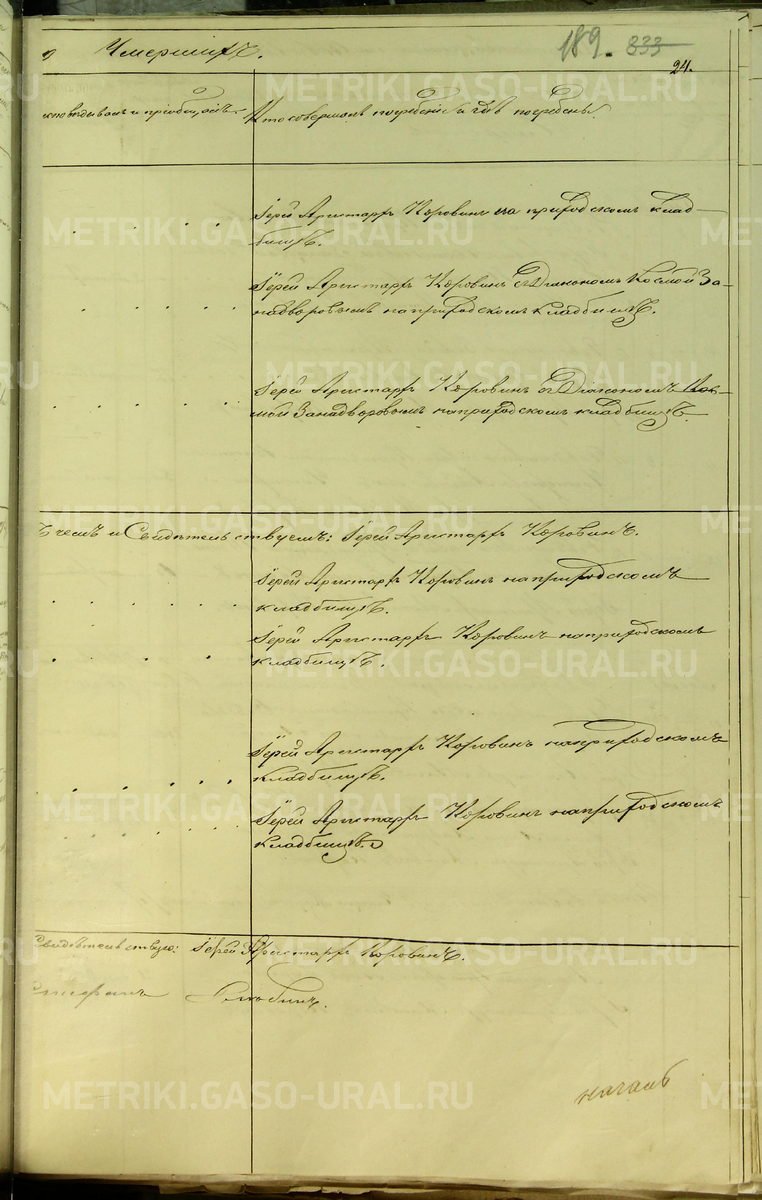 Умершихъ.
189. 333
24.
исповѣдывалъ и пріобщалъ
Кто совершалъ погребеніе и гдѣ погребены.
Іерей Аристархъ Коровинъ на приходскомъ клад-
бищѣ.
Іерей Аристархъ Коровинъ съ Діакономъ Космой За-
надворовымъ на приходскомъ кладбищѣ.
Іерей Аристархъ Коровинъ съ Діакономъ Кос-
мой Занадворовымъ на приходскомъ кладбищѣ.
чемъ и Свидѣтельствуемъ: Іерей Аристархъ Коровинъ.
Іерей Аристархъ Коровинъ на приходскомъ
кладбищѣ.
Іерей Аристархъ Коровинъ на приходскомъ
кладбищѣ.
Іерей Аристархъ Коровинъ на приходскомъ
кладбищѣ.
Іерей Аристархъ Коровинъ на приходскомъ
кладбищѣ.
Свидѣтельствую: Іерей Аристархъ Коровинъ.
METRIKI.GASO-URAL.RU